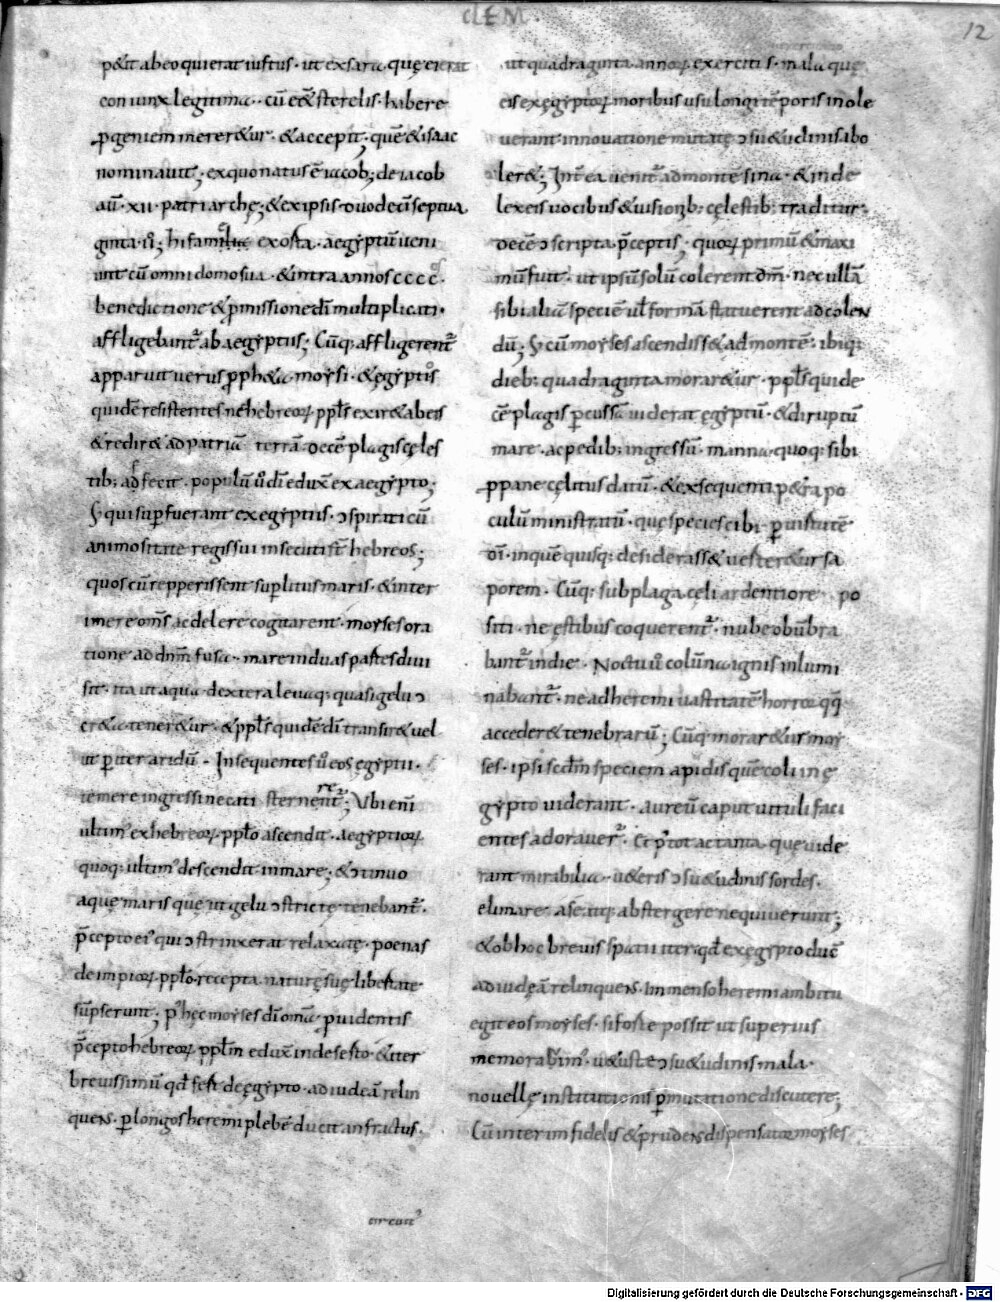 CLEM
12
petit abeo quierat iustus · ut exsara quę ei erat
coniunx legitima · cū eēt sterelis · habere
ꝓgeniem mereretur · & accepit · quē & isaac
nominauit ; ex quo natus ē iacob ; de iacob
aūt · XII · patriarchę ; & ex ipsis duodecī septua
ginta · ii ; hi famis exorta · aegyptū ueni
unt cū omni domo sua · & intra annos cccc
benedictione & ꝓmissione dī multiplicati ·
affligebant᷑ ab aegyptiis ; Cūq; affligerent᷑
apparuit uerus ꝓph&a moysi · & egyptios
quidē resistentes ne hebreoꝝ ppl̄s exir& ab eis
& redir& ad patriā terrā · decē plagis cęles
tib; adfecit · populū ū dī eduxit ex aegypto ;
S; qui supfuerant ex egyptiis · ɔspirati cū
animositate regis sui insecuti sт̄ hebreos ;
quos cū repperissent sup litus maris · & inter
imere om̄s ac delere cogitarent · moyses ora
tione ad dn̄m fusa · mare in duas partes diui
sit · ita ut aqua dextera leuaq; quasi gelu ɔ
cr&a tener&ur · & ppl̄s quidē dī transir& uel
ut p iter aridū · Insequentes ū eos egyptii ·
temere ingressi necati sternerent᷑ ; Ubi enī
ultim᷒ ex hebreoꝝ ppl̄o ascendit · aegyptioꝝ
quoq; ultim᷒ descendit in mare ; & ɔtinuo
aquę maris quę ut gelu ɔstrictę tenebant᷑ ·
p̄cepto ei᷒ qui ɔstrinxerat relaxatę · poenas
de impioꝝ ppl̄o recepta naturę suę libertate
sūpserunt ; p᷒ hęc moyses dī om̄a puidentis
p̄cepto hebreoꝝ ppl̄m eduxit in deserto · & iter
breuissimū qd̄ fert de ęgypto · ad iudeā relin
quens · p longos heremi plebē ducit anfractus ·
circuit᷒
ut quadraginta annoꝝ exercitiis · mala quę
eis ex ęgyptioꝝ moribus usu longi tēporis inole
uerant innouatione mutatę ɔsu&udinis abo
ler& ; Int̄ea uenit᷑ ad montē sina · & inde
lex eis uocibus & uisionib; cęlestib; traditur ·
decē ɔscripta p̄ceptis ; quoꝝ primū & maxi
mū fuit · ut ipsū solū colerent dm̄ · nec ullā
sibi aliā speciē ul̄ formā statuerent ad colen
dū ; S; cū moyses ascendiss& ad montē · ibiq;
dieb; quadraginta morar&ur · ppl̄s qui de
cē plagis pcussā uiderat ęgyptū · & diruptū
mare · ac pedib; ingressū · manna quoq; sibi
ꝓ pane cęlitus datū · & ex sequenti p&ra po
culū ministratū · quę species cibi · p uirtutē
dī · in quē quisq; desiderass& uerter&ur sa
porem · Cūq; sub plaga cęli ardentiore po
siti · ne ęstibus coquerent᷑ · nube obūbra
bant᷑ in die · Noctu ū colūna ignis inlumi
nabant᷑ · ne ad heremi uastitatē horror qq;
acceder& tenebrarū ; Cūq; morar&ur moy
ses · ipsi scdm̄ speciem apidis quē coli in ę
gypto uiderant · aureū caput uituli faci
entes adorauer᷑ · Et p᷒ tot ac tanta quę uide
rant mirabilia · u&eris ɔsu&udinis sordes ·
elimare a se atq; abstergere nequiuerunt ;
& ob hoc breuis spatii iter qd̄ ex ęgypto ducit
ad iudęā relinquens · immenso heremi ambitu
egit eos moyses · si forte possit ut superius
memorabim᷒ · u&ustę ɔsu&udinis mala ·
nouellę institutionis pmutatione discutere ;
Cū interim fidelis & prudens dispensator moyses
Digitalisierung gefördert durch die Deutsche Forschungsgemeinschaft · DFG